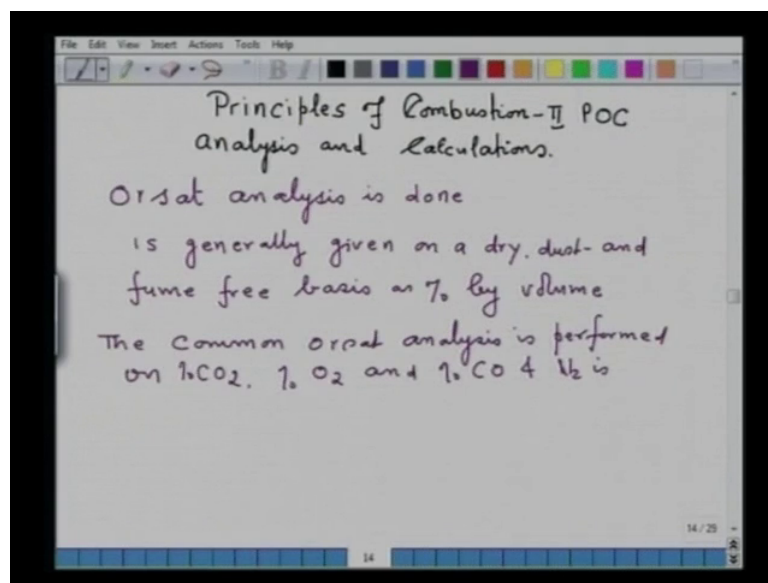 File Edit View Insert Actions Tools Help
Principles of Combustion-II POC
analysis and Calculations.
Orsat analysis is done
is generally given on a dry, dust- and
fume free basis as % by volume
The common orsat analysis is performed
on %CO2, % O2 and % CO & N2 is
14/29
14